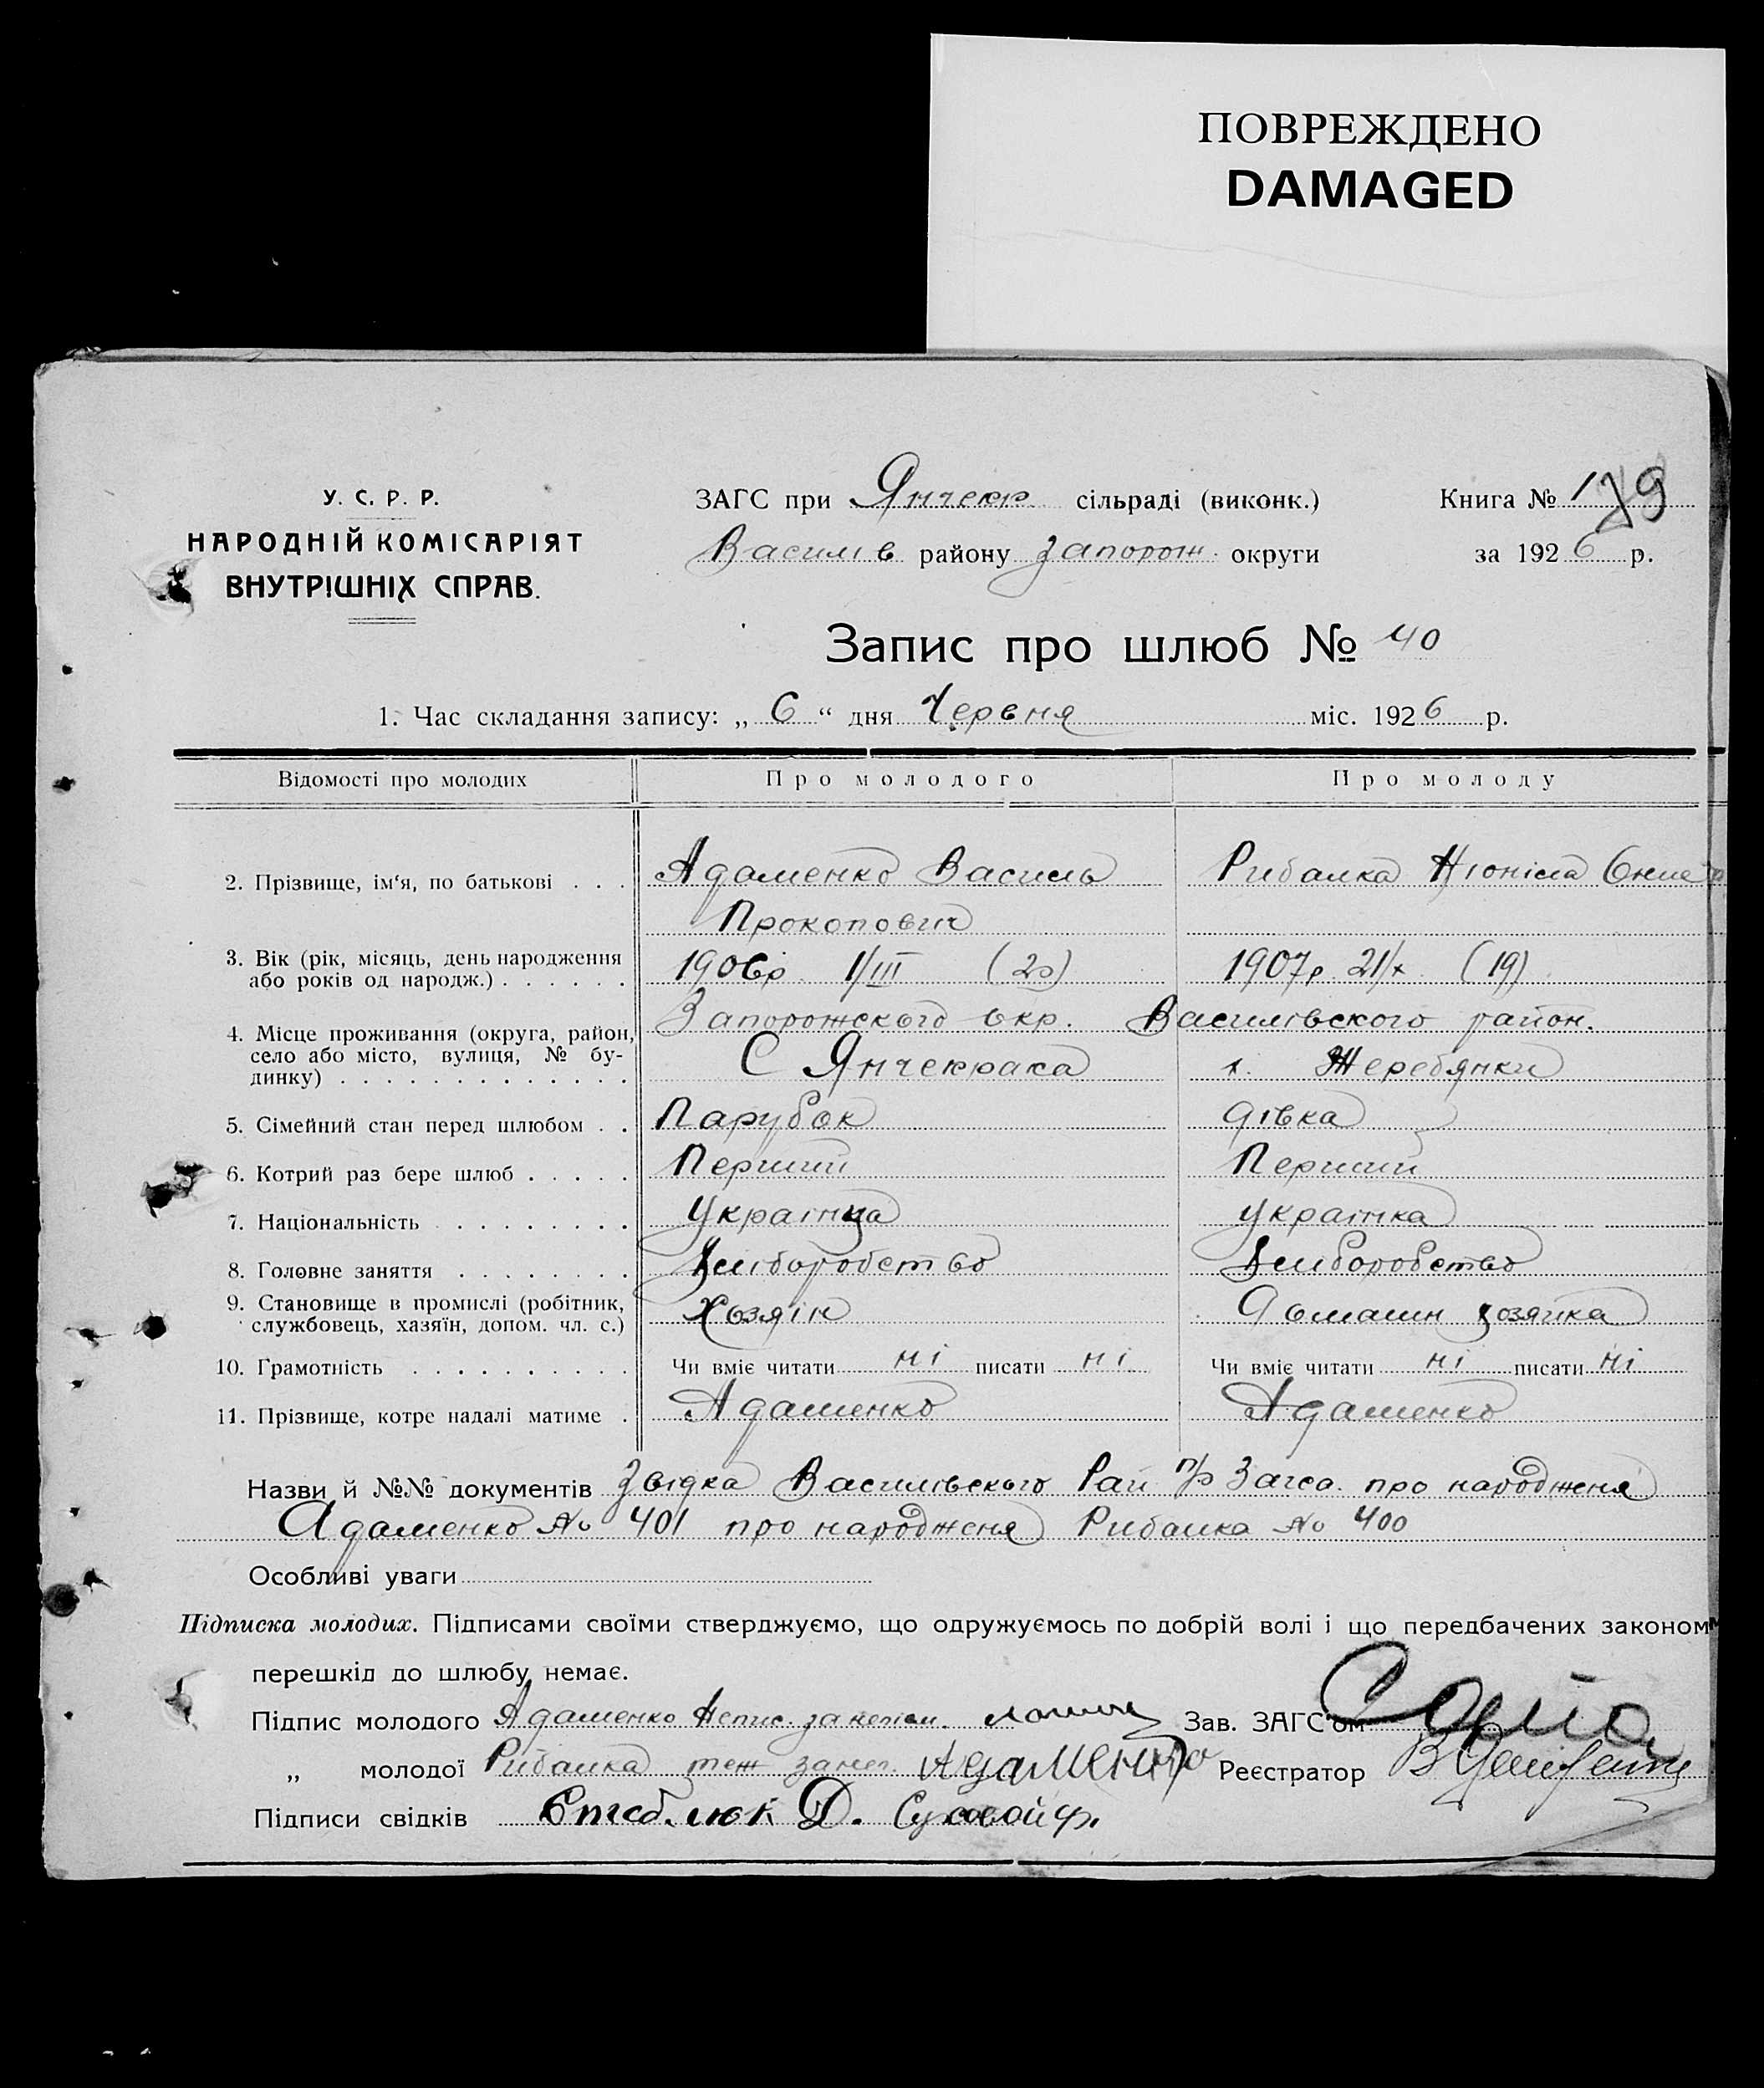 ПОВРЕЖДЕНО
DAMAGED
У. С. Р. Р.
НАРОДНІЙ КОМІСАРІЯТ
ВНУТРІШНІХ СПРАВ.
ЗАГС при Янчекр. сільраді (виконк.)
Василів району Запорож. округи
Книга № 179
за 1926 р.
Запис про шлюб № 40
1. Час складання запису: „ 6 “ дня Червня міс. 1926 р.
Відомості про молодих Про молодого Про молоду
2. Прізвище, ім‘я, по батькові . . . Адаменко Василь Рибалка
Прокопович
3. Вік (рік, місяць, день народження
або років од народж.) . . . . . . 1906р. 1/III (20) 1907р. 21/х (19)
Запорожського окр. Василівского район.
4. Місце проживання (округа, район,
село або місто, вулиця, № бу-
динку) . . . . . . . . . . . . . С Янчекрака х. Жеребянки
5. Сімейний стан перед шлюбом . . Парубок дівка
6. Котрий раз бере шлюб . . . . . Перший Перший
7. Національність . . . . . . . . . Українца українка
8. Головне заняття . . . . . . . . Хліборобство Хліборобство
9. Становище в промислі (робітник,
службовець, хазяїн, допом. чл. с.) Хозяін Домашн хозяйка
10. Грамотність . . . . . . . . . . Чи вміє читати ні писати ні Чи вміє читати ні писати ні
11. Прізвище, котре надалі матиме . Адаменко Адаменко
Назви й №№ документів Звідка Василівського Рай п/р Загса. про народженя
Адаменко № 401 про народженя Рибалка № 400
Особливі уваги
Підписка молодих. Підписами своїми стверджуємо, що одружуємось по добрій волі і що передбачених законом
перешкід до шлюбу немає.
Підпис молодого Адаменко Непис. за Зав. ЗАГС‘ом
„ молодої Рибалка теж Адаменко Реєстратор
Підписи свідків Д. Суховой Ф.